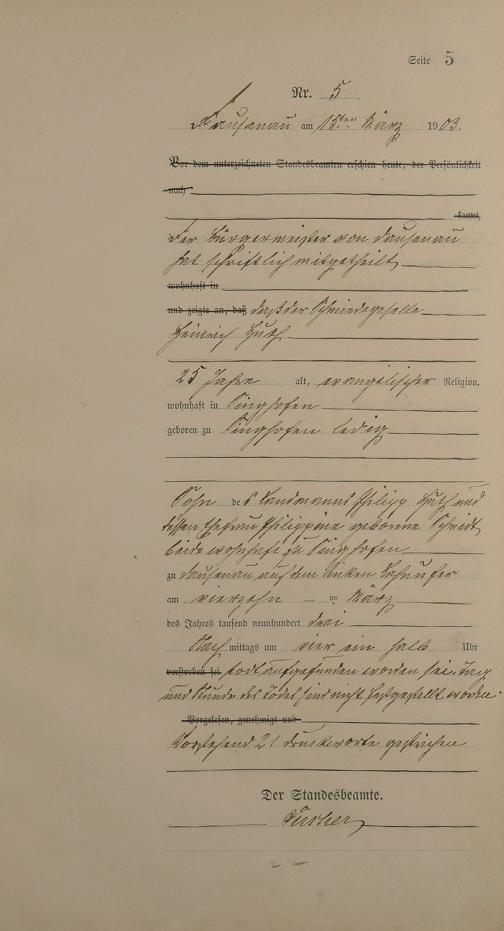 Seite 5
Nr. 5
Dausenau am 15ten März 1903.
Vor dem unterzeichneten Standesbeamten erschien heute, der Persönlichkeit
nach
kannt,
Der Bürgermeister von Dausenau
hat schriftlich mitgetheilt
wohnhaft in
und zeigte an, daß daß der Schmiedegeselle
Heinrich Huth
25 Jahre alt, evangelischer Religion,
wohnhaft in Singhofen
geboren zu Singhofen ledig
Sohn des Landmanns Philipp Huth und
dessen Ehefrau Philippine geborene Scheidt
beide wohnhaft zu Singhofen
zu Dausenau auf dem linken Lahnufer
am vierzehn ten März
des Jahres tausend neunhundert drei
Nach mittags um vier ein halb Uhr
verstorben sei. todt aufgefunden worden sei. Tag
und Stunde des Todes sind nicht festgestellt worden.
Vorgelesen, genehmigt und
Vorstehend 21 Druckworte gestrichen
Der Standesbeamte.